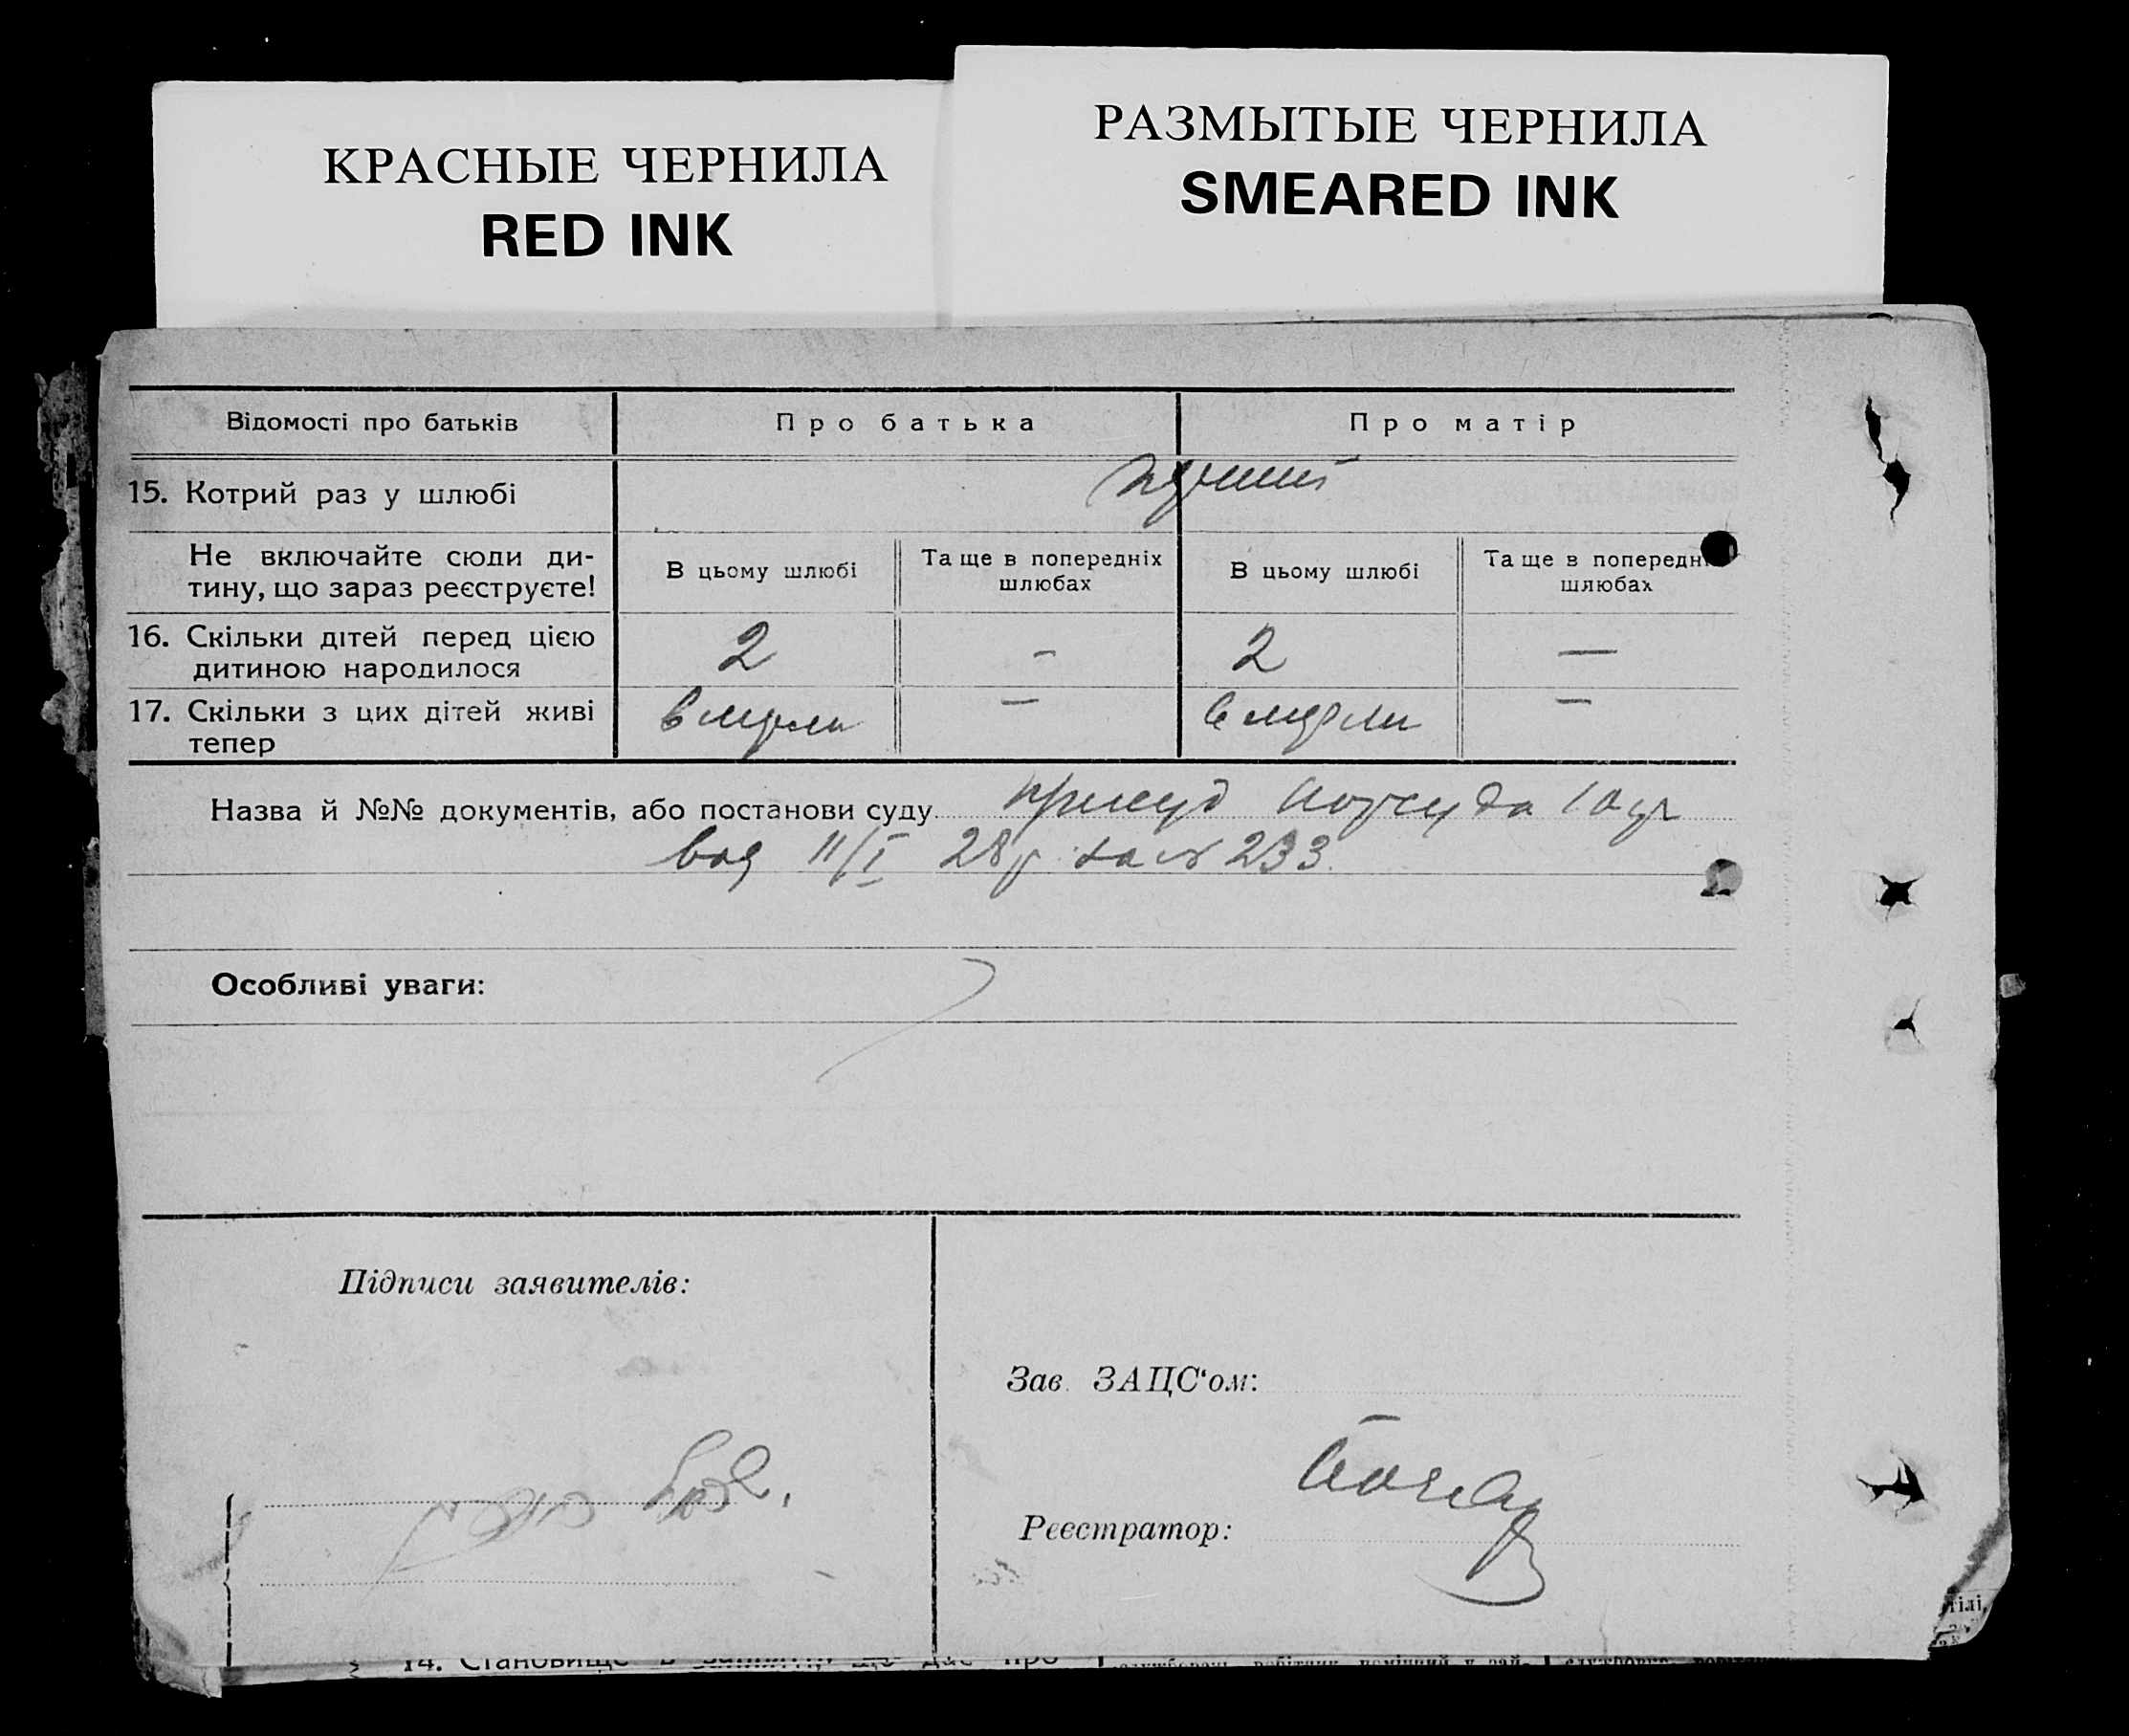 КРАСНЫЕ ЧЕРНИЛА
RED INK
РАЗМЫТЫЕ ЧЕРНИЛА
SMEARED INK
Відомості про батьків
Про батька
Про матір
15. Котрий раз у шлюбі
перший
Не включайте сюди ди-
тину, що зараз реєструєте!
В цьому шлюбі
Та ще в попередніх
шлюбах
В цьому шлюбі
Та ще в попередн
шлюбах
16. Скільки дітей перед цією
дитиною народилося
2 - 2 —
17. Скільки з цих дітей живі
тепер
вмерли — вмерли —
Назва й №№ документів, або постанови суду присуд Нарсуда
від 11/I 28 р. за № 233.
Особливі уваги:
Підписи заявителів:
Зав. ЗАЦС‘ом:
Реєстратор:
14. Становище в занятті, що дає про